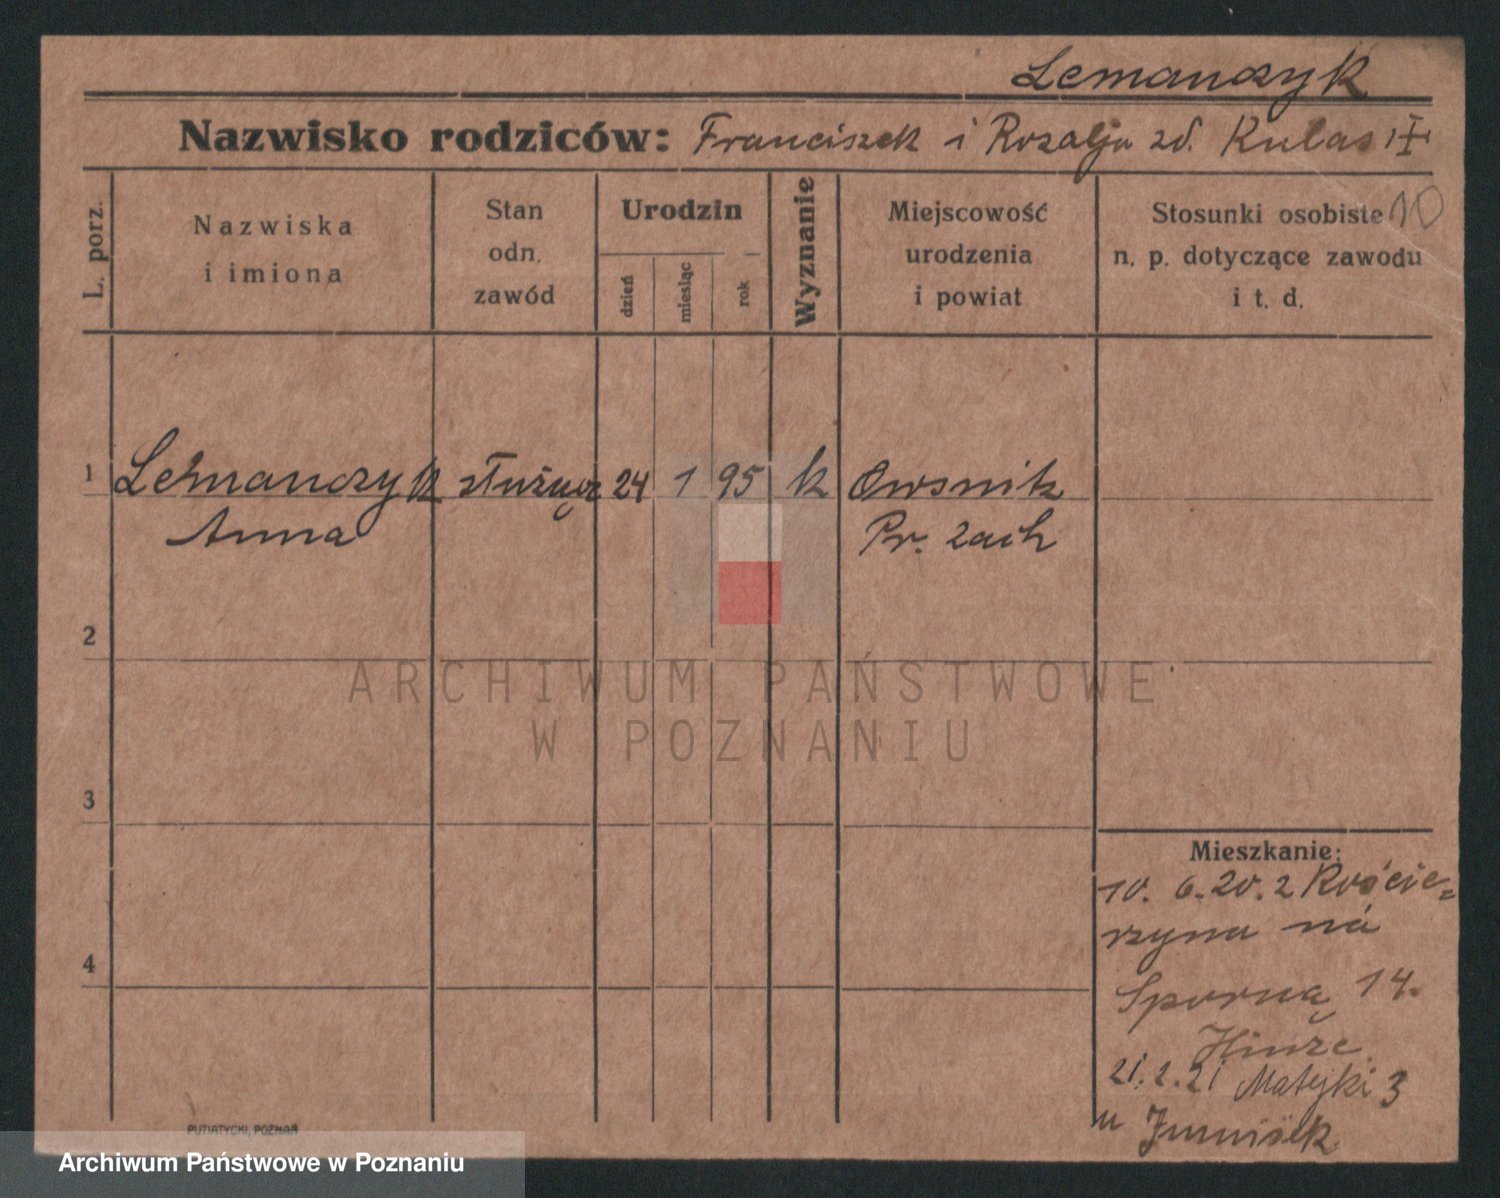 Lemanczyk
Nazwisko rodziców: Franciszek i Rozalja zd. Kulas
L. porz.
Nazwiska
i imiona
Stan
odn.
zawód
Urodzin
dzień
miesiąc
rok
Wyznanie
Miejscowość
urodzenia
i powiat
Stosunki osobiste 10
n. p. dotyczące zawodu
i t. d.
1 Lemanczyk służąca 24 1 95 k Owsnik
Anna Pr. Zach
2
ARCHIWUM PAŃSTWOWE
W POZNANIU
3
Mieszkanie:
10. 6. 20. z Koście-
rzyna na
4
Sporną 14.
Hinze
21. 2. 21 Matejki 3
u
PUTIATYCKI, POZNAŃ
Archiwum Państwowe w Poznaniu